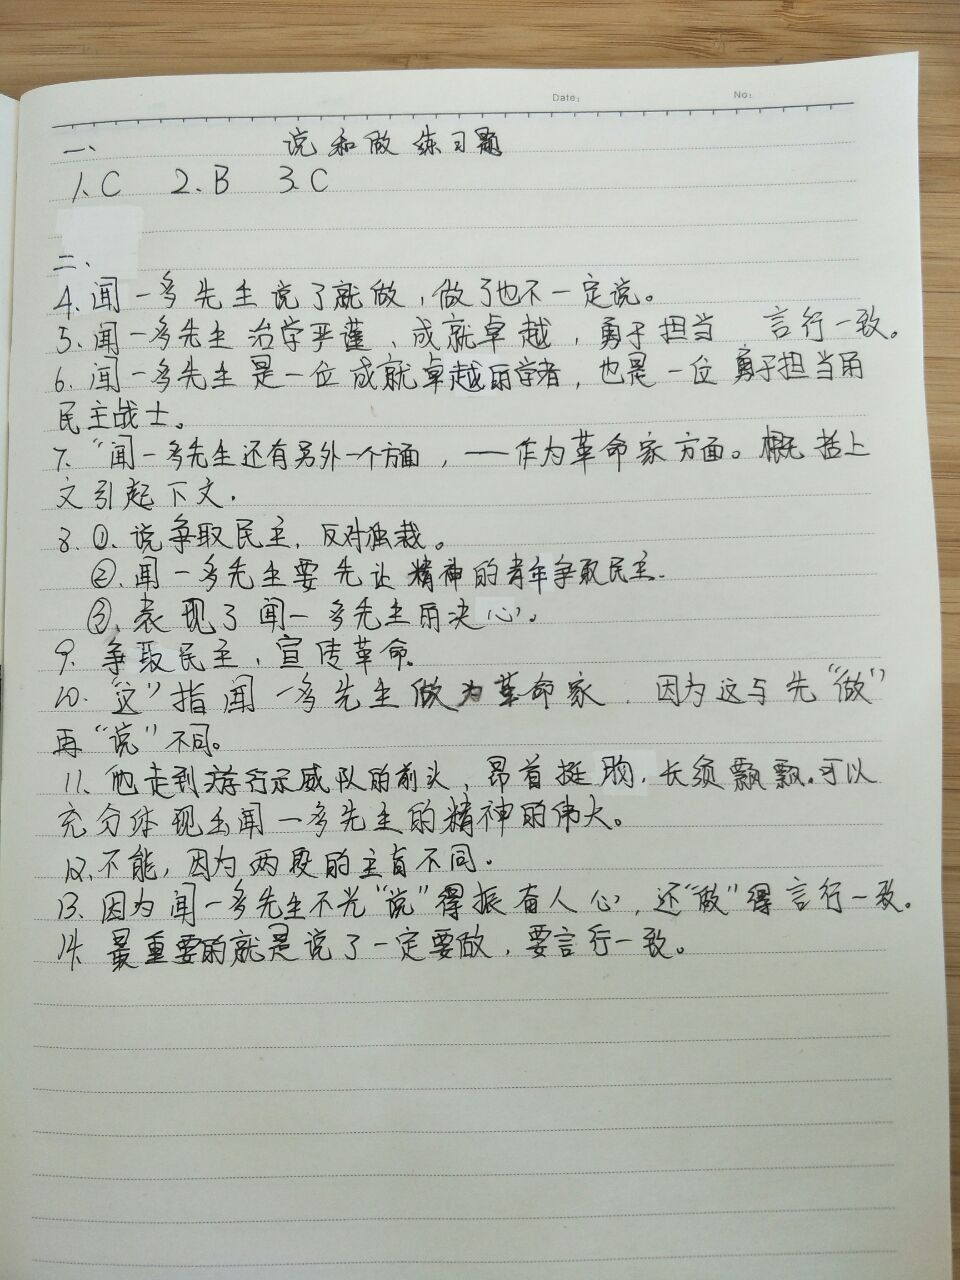 Date:
No:
一、 说和做练习题
1、C 2、B 3、C
二、
4、闻一多先生说了就做，做了也不一定说。
5、闻一多先生治学严谨，成就卓越，勇于担当 言行一致。
6、闻一多先生是一位成就卓越的学者，也是一位勇于担当的
民主战士。
7、“闻一多先生还有另外一个方面，——作为革命家方面。概括上
文引起下文.
8、①、说争取民主，反对独裁。
②、闻一多先生要先让精神的青年争取民主.
③、表现了闻一多先生的决心。
9、争取民主，宣传革命。
10、“这”指闻一多先生做为革命家，因为这与先“做”
再“说”不同。
11、他走到游行示威队的前头，昂首挺胸，长须飘飘。可以
充分体现出闻一多先生的精神的伟大。
12、不能，因为两段的主旨不同.
13、因为闻一多先生不光“说”得振有人心，还“做”得言行一致。
14、最重要的就是说了一定要做，要言行一致。